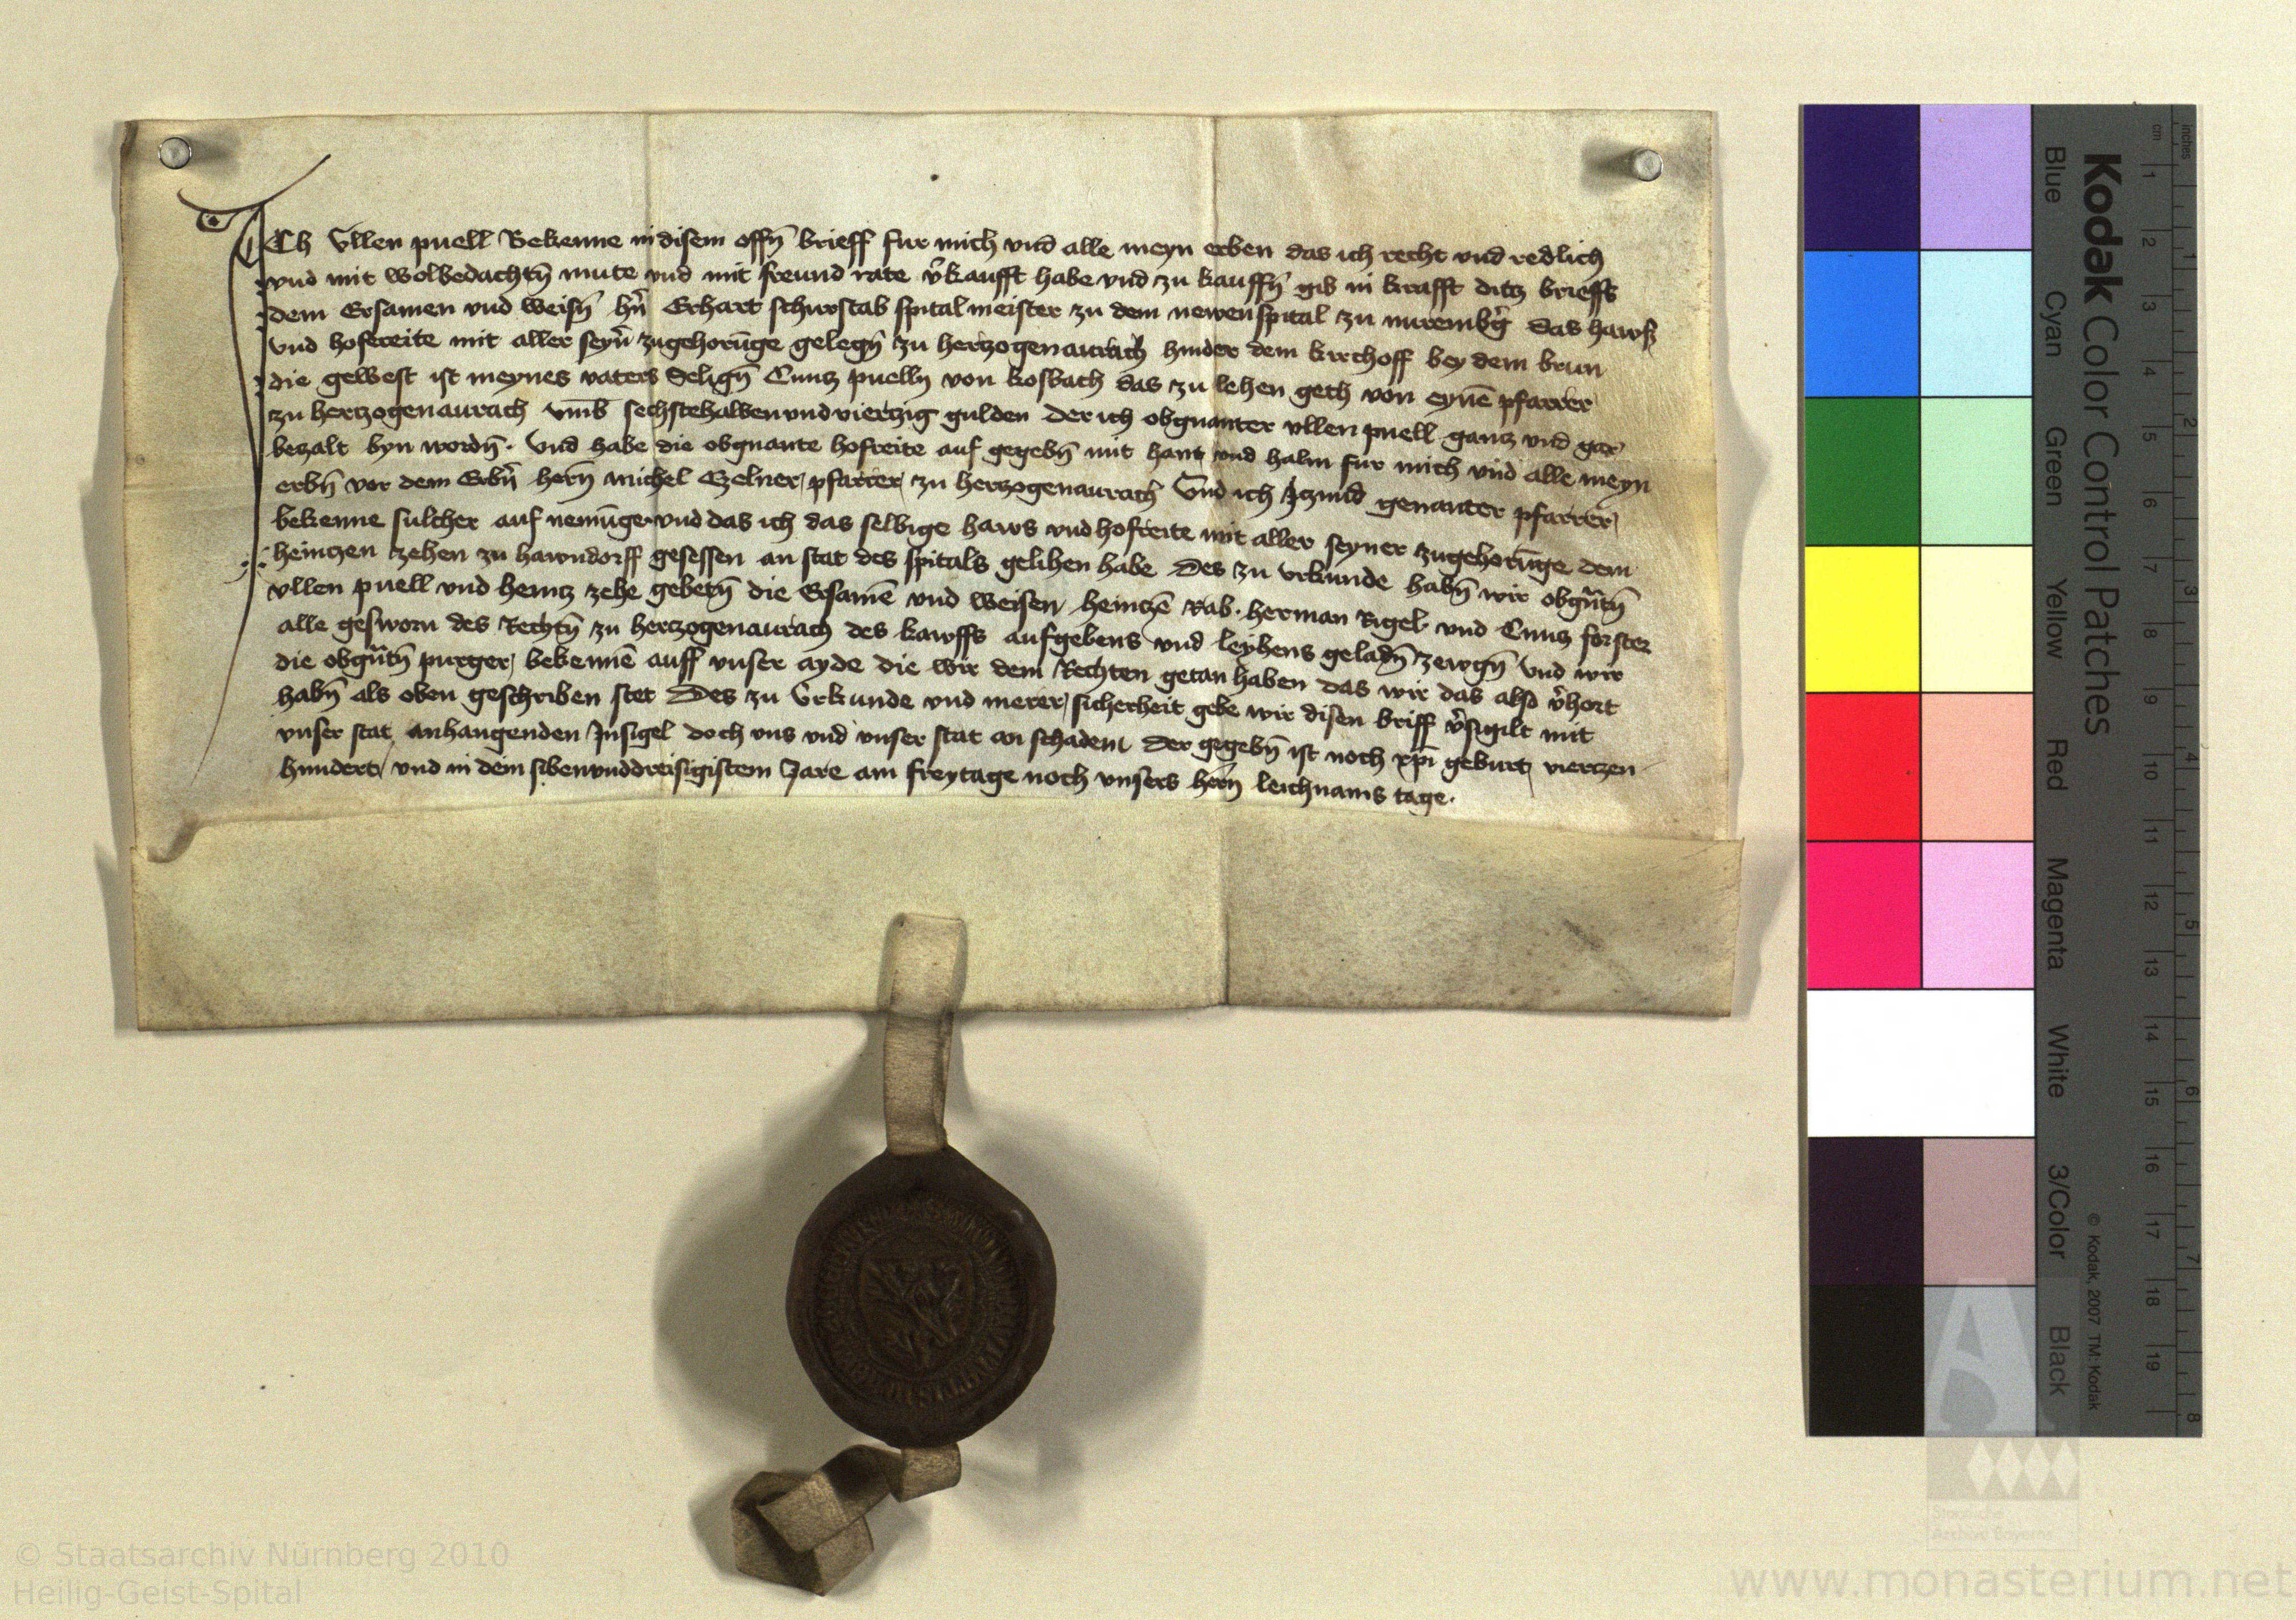 ICh Vllen puell Bekenne in disem offn̄ brieff fur mich vnd alle meyn erben das ich recht vnd redlich
vnd mit wolbedachtn̄ mute vnd mit freund rate v̉kaufft habe vnd zu kauffn̄ gib in krafft ditz brieffs
dem Ersamen vnd weisn̄ hn̄ Erhart schurstab spitalmeister zu dem newen spital zu nurembg̉ das haws
vnd hofereite mit aller seyn̉ zugehorūge gelegn̄ zu hertzogenaurach hinder dem kirchoff bey dem brun
die gewest ist meynes vaters Selign̄ Cuntz puelln von kosbach das zu lehen geth von eynē pfarrer
zu hertzogenaurach vmb sechstehalben vnd viertzig gulden der ich obgnanter vllen puell gantz vnd gar
bezalt byn wordn̄. Vnd habe die obgnante hofreite auf gegebn̄ mit hant vnd halm fur mich vnd alle meyn
erbn̄ vor dem Erbn̉ hern̄ michel Czelner pfarrer zu hertzogenaurach Vnd ich Itzund genanter pfarrer
bekenne sulcher auf nemūge vnd das ich das selbige haws vnd hofreite mit aller seyner zugehorūge dem
heintzen zehen zu hawndorff gesessen an stat des spitals gelihen habe Des zu vrkunde habn̄ wir obgn̄tn̄
vllen puell vnd heintz zehe gebetn̄ die Ersamē vnd weisen heintzē Rab. herman Rigel vnd Cuntz forster
alle gesworn des Rechtn̄ zu hertzogenaurach des kawffs aufgebens vnd leyhens geladn̄ zewgn̄ Vnd wir
die obgn̄tn̄ purger bekennē auff vnser ayde die wir dem Rechten getan haben das wir das also v̉hort
habn̄ als oben geschriben stet Des zu Vrkunde vnd merer sicherheit gebe wir disen briff v̉sigilt mit
vnser stat anhangenden Insigel doch vns vnd vnser stat an schaden Der gegebn̄ ist noch xp̄i geburt viertzen
hundert vnd in dem sibenvnddreisigistem Jare am freytage noch vnsers hern̄ leichnams tage.
Kodak Color Control Patches
Blue Cyan Green Yellow Red Magenta White 3/Color Black
© Kodak, 2007 TM: Kodak
cm 1 2 3 4 5 6 7 8 9 10 11 12 13 14 15 16 17 18 19
inches 1 2 3 4 5 6 7 8
© Staatsarchiv Nürnberg 2010
Heilig-Geist-Spital
Staatliche
Archive Bayerns
www.monasterium.net